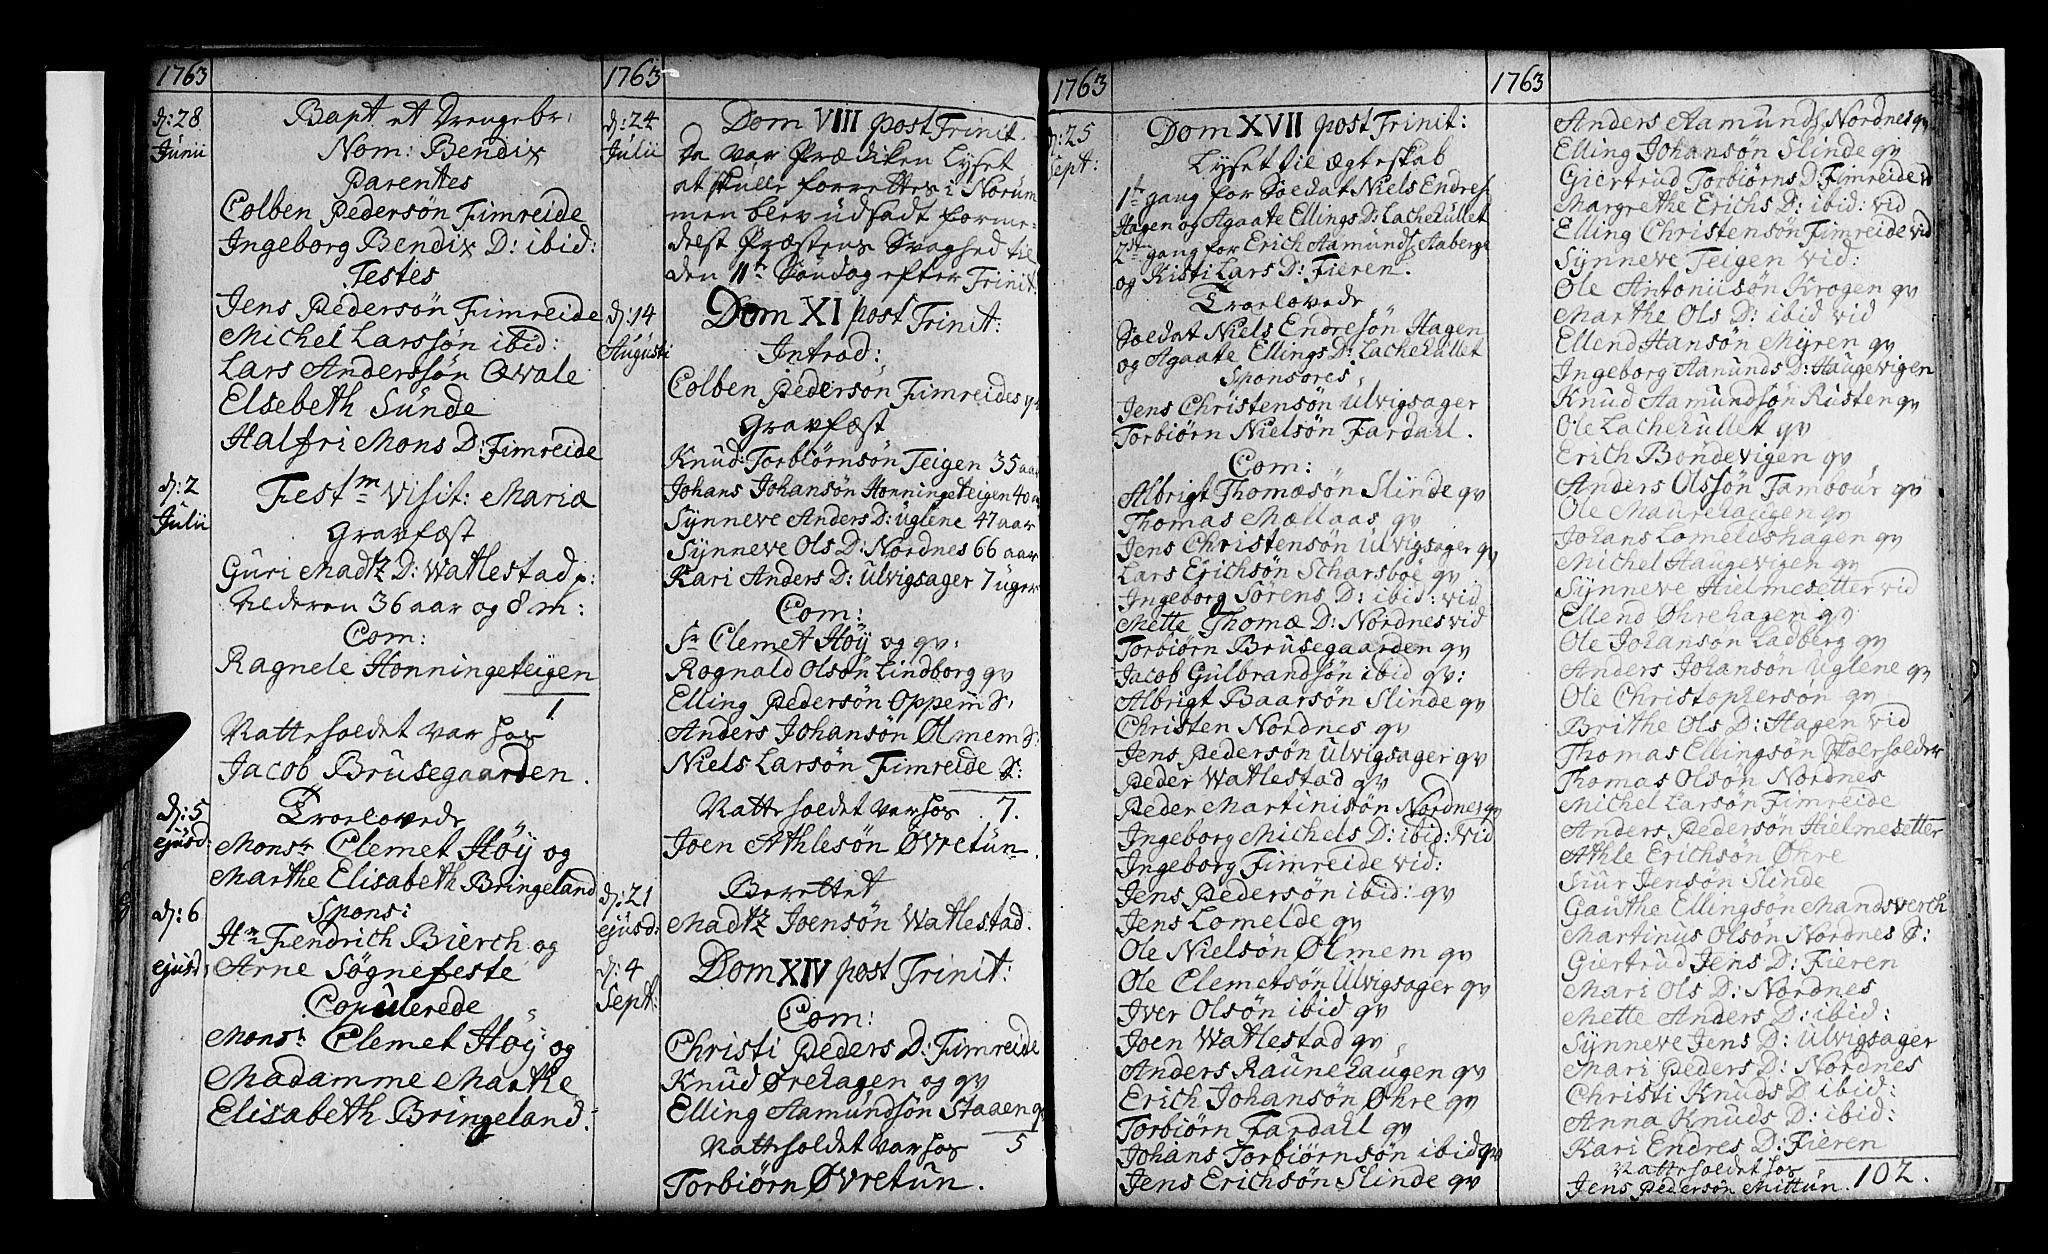 1763
d: 28
Junii
Bapt et Drengebr:
Nom: Bendix
Parentes
Colben Pedersön Fimreide
Ingeborg Bendix D: ibid:
Testes
Jens Pedersön Fimreide
Michel Larssön ibid:
Lars Anderssön Qvale
Elsebeth Sünde
Halfri Mons D: Fimreide
d: 2
Julii
Fest m Visit: Mariæ
Gravfæst
Guri Madtz D: Watlestad p:
Alderen 36 aar og 8 m:
Com:
Ragnele Honningeteigen
1.
Natteholdet var hos
Jacob Brusegaarden.
d: 5
ejusd:
Troelovede
Monsr Clemet Höÿ og
Marthe Elisabeth Bringeland
Sponsi
d: 6
Hr Fendrich Bierch og
ejusd:
Arne Sögnefeste
Copulerede
Monsr Clemet Höÿ og
Madamme Marthe
Elisabeth Bringeland.
1763
d: 24
Julii
Dom VIII post Trinit.
Da var Prædiken Lyset
at skulle forrettes i Norum
men blev udsadt forme-
delst Præstens Svaghed til
den 11te Söndag efter Trinit.
d: 14
Augusti
Dom XI post Trinit:
Introd:
Colben Pedersön Fimreides
Gravfæst
Knud Torbiörnsön Teigen 35 aar
Johans Johansön Honningeteigen 40
Synneve Anders D: Uglene 47 aar
Synneve Ols D: Nordnes 66 aar
Kari Anders D: Ulvigsager 7 uger
Com:
Sr Clemet Höÿ og qv:
Rognald Olsön Lindborg qv
Elling Pedersön Oppem S.
Anders Johansön Ølmem S:
Niels Larsön Fimreide S:
Natteholdet var hos 7.
Joen Athlesön Øvretun.
d: 21
ejusd:
Berettet
Madtz Joensön Watlestad.
d: 4
Sept:
Dom XIV post Trinit:
Com:
Christi Peders D: Fimreide
Knud Örehagen og qv
Elling Aamundsön Stagen qv
Natteholdet var hos 5
Torbiörn Øvretun.
1763
d: 25
Sept:
Dom XVII post Trinit:
Lyset til Ægteskab
1te gang for Soldat Niels Endres:
Hagen og Agaate Ellings D: Lachehullet
2den gang for Erich Aamunds Aaberge
og Kisti Lars D: Fieren.
Troelovede
Soldat Niels Endresön Hagen
og Agaate Ellings D: Lachehullet
Sponsores
Jens Christensön Ulvigsager
Torbiörn Nielsön Fardall.
Com:
Albrigt Thomæsön Slinde qv
Thomas Mællaas qv
Jens Christensön Ulvigsager qv
Lars Erichsön Scharsboe qv
Ingeborg Sörens D: ibid: vid
Mette Thomæ D: Nordnes vid
Torbiörn Brusegaarden qv
Jacob Gulbrandsön ibid qv:
Albrigt Baarsön Slinde qv
Christen Nordnes qv
Jens Pedersön Ulvigsager qv
Peder Watlestad qv
Peder Martinisön Nordnes qv
Ingeborg Michels D: ibid: vid
Ingeborg Fimreide vid:
Jens Pedersön ibid: qv
Jens Lomelde qv
Ole Nielsön Ølmem qv
Ole Clemetsön Ulvigsager qv
Iver Olsön ibid qv
Joen Watlestad qv
Anders Raunehaugen qv
Erich Johansön Øhre qv
Torbiörn Fardall qv
Johans Torbiörnsön ibid qv
Jens Erichsön Slinde qv
1763
Anders Aamunds Nordnes qv
Elling Johansön Slinde qv
Giertrud Torbiörns D: Fimreide vid
Margrethe Erichs D: ibid: vid
Elling Christensön Fimreide vid
Synneve Teigen vid:
Ole Antonisön Krogen qv
Marthe Ols D: ibid vid
Ellend Hansön Myren qv
Ingeborg Aamunds D: Haugevigen
Knud Aamundsön Rusten qv
Ole Lachehullet qv
Erich Bondevigen qv
Anders Olsön Tambour qv
Ole Maurehaugen qv
Johans Lomeldshagen qv
Michel Haugevigen qv
Synneve Hielmesetter vid
Ellend Öhrehagen qv
Ole Johansön Ladberg qv
Anders Johansön Uglene qv
Ole Christophersön qv
Brithe Ols D: Hagen vid
Thomas Ellingsön
Thomas Olsön Nordnes
Michel Larsön Fimreide
Anders Pedersön Hielmesetter
Athle Erichsön Øhre
Siur Jensön Slinde
Gauthe Ellingsön Mandsverch
Martinus Olsön Nordnes S:
Giertrud Jens D: Fieren
Mari Ols D: Nordnes
Mette Anders D: ibid:
Synneve Jens D: Ulvigsager
Mari Peders D: Nordnes
Christi Knuds D ibid:
Anna Knuds D: ibid:
Kari Endres D: Fieren
Natteholdet hos
Jens Pedersön Mittun. 102.